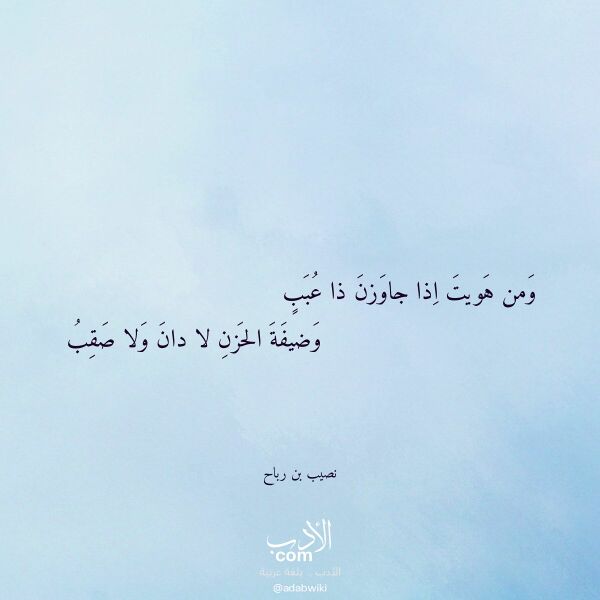 وَمن هَويتَ اِذا جاوَزنَ ذا عُبَبٍ
وَضيفَةَ الحَزنِ لا دانَ وَلا صَقِبُ
نصيب بن رباح
الأدب
com
الأدب .. بلغة عربية
@adabwiki